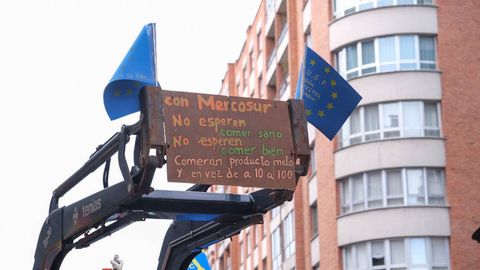 con Mercosur
No esperen
comer sano
No esperen
comer bien
Comerán producto malo
y en vez de a 10 a 100
tenías
U.S.P